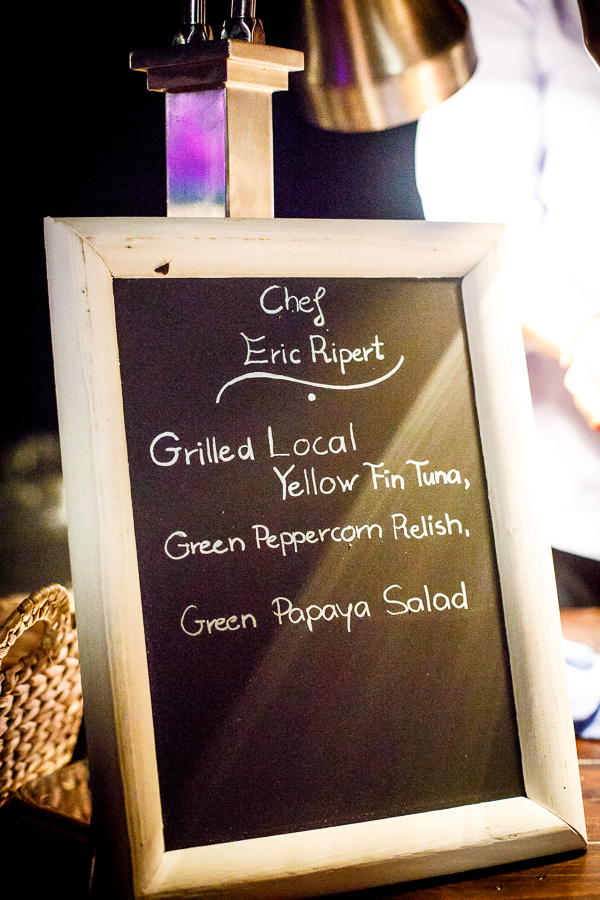 Chef
Eric Ripert
Grilled Local
Yellow Fin Tuna,
Green Peppercorn Relish,
Green Papaya Salad